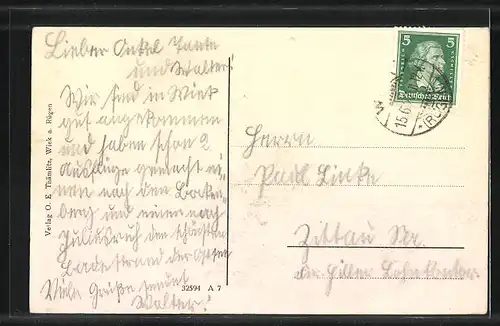 Lieber Onkel Tante
und Walter!
Wir sind in Wiek
gut angekommen
und haben schon 2
Ausflüge gemacht ei-
nen nach den Baken-
berg und einen nach
Juliusruh den schönsten
Badestrand der Ostsee
Viele Grüße sendet
Walter!
Verlag O. E. Thämlitz, Wiek a. Rügen
32594 A 7
5 5
Deutsches Reich
15.6.
(RÜGEN)
Herrn
Paul Linke
Zittau